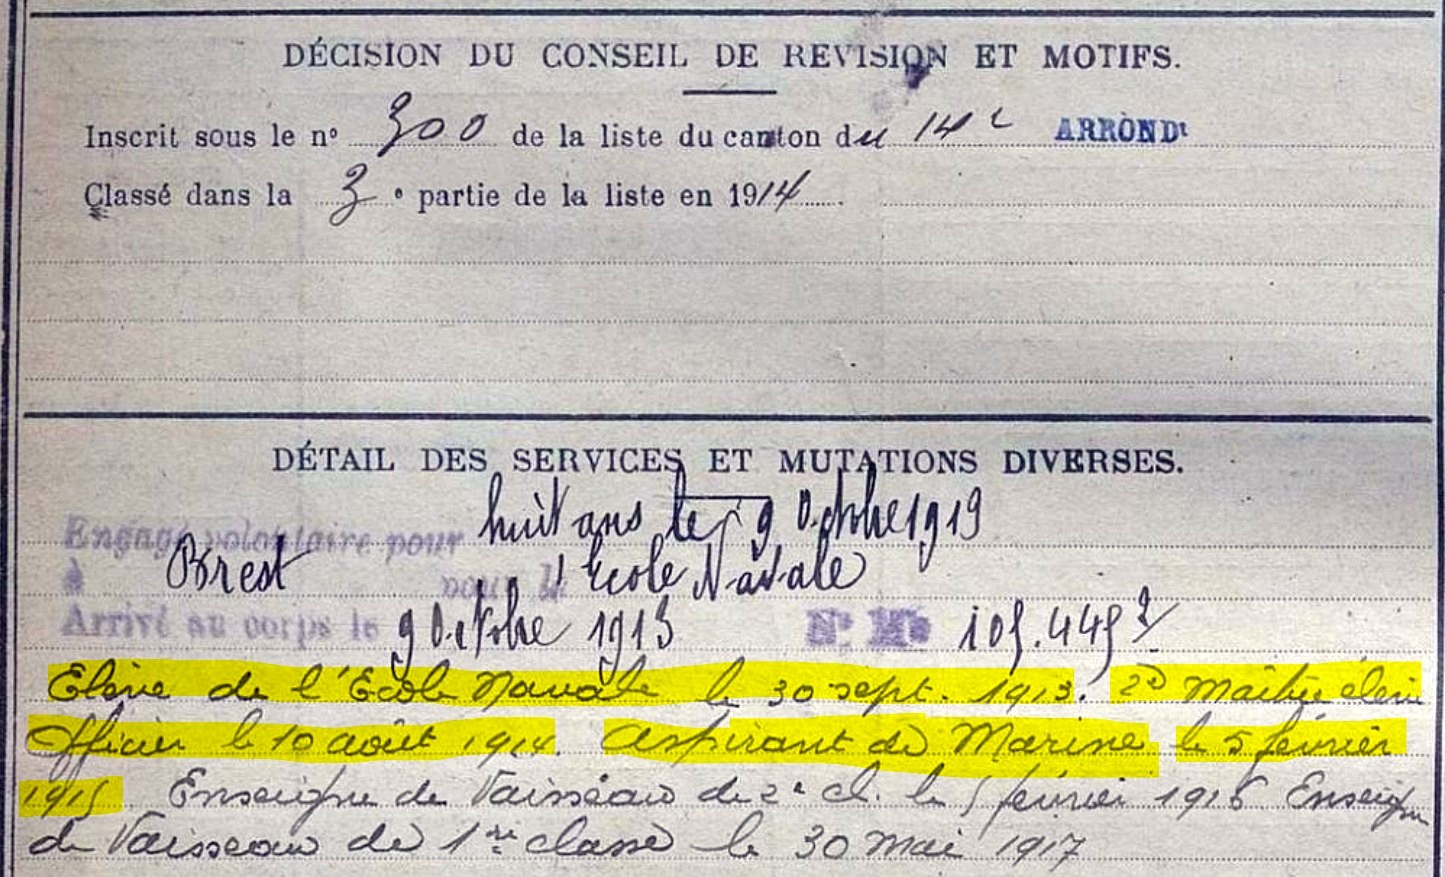 DÉCISION DU CONSEIL DE REVISION ET MOTIFS.
Inscrit sous le nº 300 de la liste du canton du 14e ARRONDt
Classé dans la 3e partie de la liste en 1914.
DÉTAIL DES SERVICES ET MUTATIONS DIVERSES.
Engagé volontaire pour huit ans le 9 Octobre 1913
à Brest pour l'Ecole Navale
Arrivé au corps le 9 Octobre 1913 Nº Mle 105.445
Elève de l'Ecole Navale le 30 sept. 1913. 2d Maître élève
Officier le 10 août 1914. Aspirant de Marine le 5 février
1915 Enseigne de Vaisseau de 2e cl. le 5 février 1916 Enseigne
de Vaisseau de 1re classe le 30 mai 1917